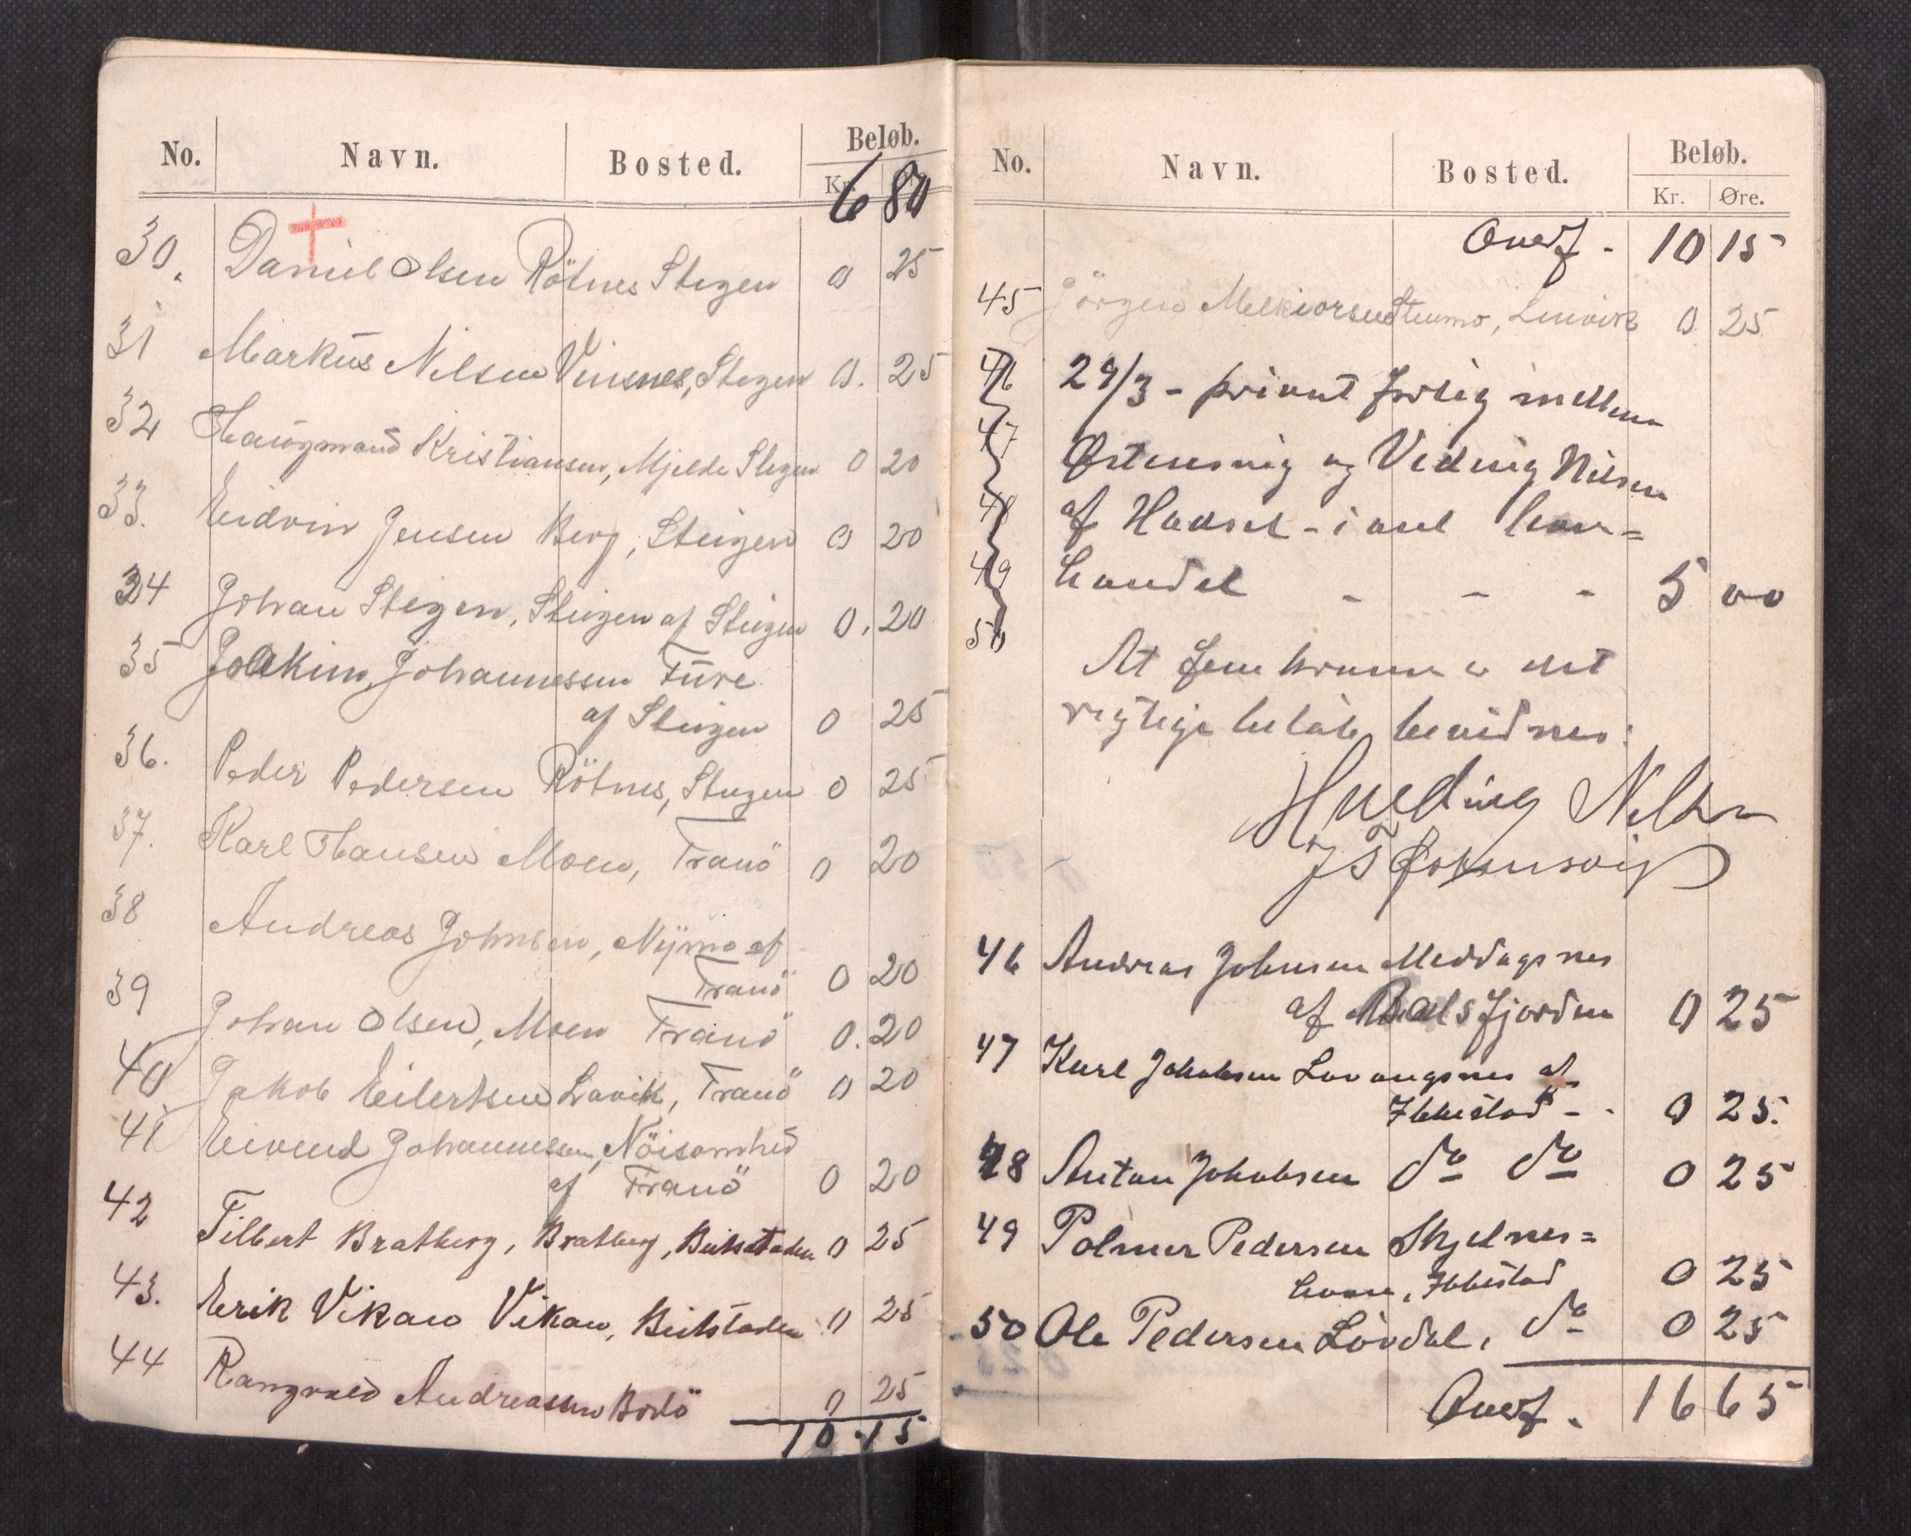 No. Navn. Bosted. Beløb.
Kr. Øre.
6 80
30. Daniel Olsen Rötnes Stegen 0 25
31 Markus Nilsen Vinsnes, Stegen 0. 25
32 Haugmand Kristiansen, Mjelde Stegen 0 20
33. Eidvin Jensen Berg, Steigen 0 20
34 Johan Stegen, Steigen af Steigen 0. 20
35 Joakim Johannessen Fure
af Steigen 0 25
36. Peder Pedersen Rötnes, Stegen 0 25
37. Karl Hansen Moen, Tranö 0 20
38 Andreas Johnsen, Nymo af
Tranö 0 20
39 Johan Olsen, Moen Tranö 0. 20
40 Jakob Eilertsen Lavik, Tranö 0 20
41 Eivind Johannessen, Nöisomhed
af Tranö 0 20
42 Tilbert Bratberg, Bratberg, Beitstaden 0 25
43. Erik Vikan Vikan, Beitstaden 0 25
44 Rangvald Andreassen Bodö 0 25
10.15
No. Navn. Bosted. Beløb.
Kr. Øre.
Overf. 10 15
45 Jörgen Melkiorsen, Lenvik 0. 25
46 29/3 - privat forlig mellem
47 Østensvig og Veding Nilsen
48 af Hadsel - i anl
49 handel - - - 5 00
50
At fem kroner er det
rigtige beløb bevidnes:
Hveding Nilsen
J T Østensvig
46 Andreas Johnsen Meddagsnes
af Balsfjorden 0 25
47 Karl Jakobsen Lavangsnes af
Ibbestad - - 0 25.
48 Anton Jakobsen do do 0 25
49 Polmer Pedersen Skjelnes=
, Ibbestad 0 25
50 Ole Pedersen Lövdal, do 0 25
Overf. 16 65